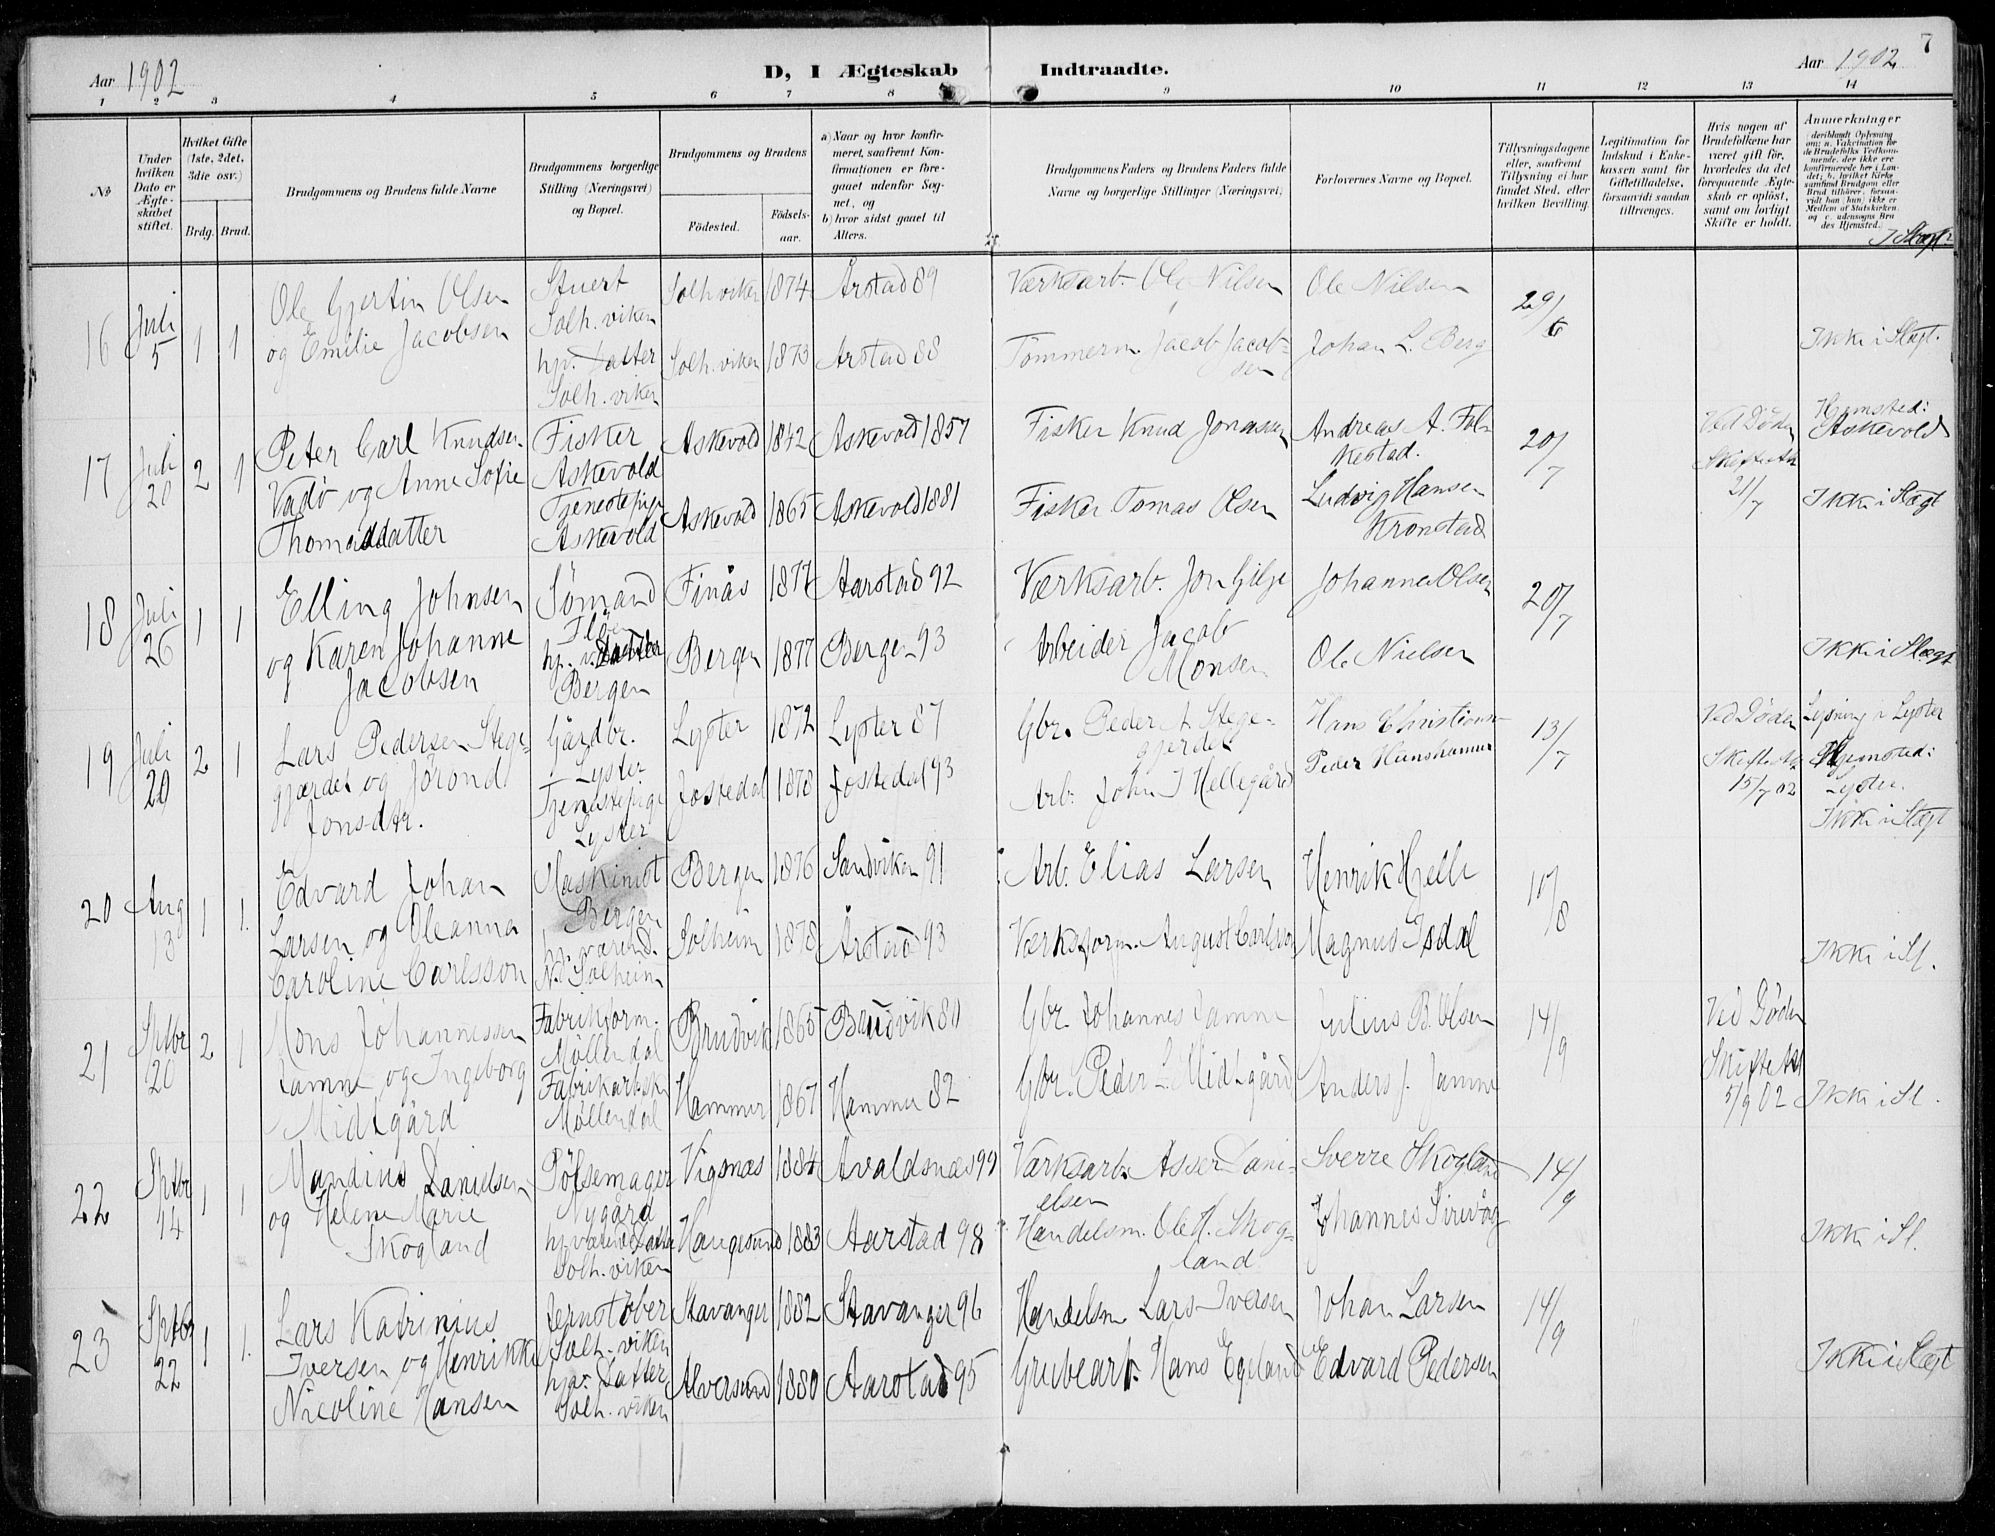 7
Aar 1902
D, I Ægteskab Indtraadte.
Aar 1902
1 2 3 4 5 6 7 8 9 10 11 12 13 14
No
Under hvilken Dato er Ægteskabet stiftet.
Hvilket Gifte (1ste, 2det, 3die osv.)
Brdg. Brud.
Brudgommens og Brudens fulde Navne
Brudgommens borgerlige Stilling (Næringsvei) og Bopæl.
Brudgommens og Brudens
Fødested.
Fødselsaar.
a) Naar og hvor konfirmeret, saafremt Konfirmationen er foregaaet udenfor Sognet, og
b) hvor sidst gaaet til Alters.
Brudgommens Faders og Brudens Faders fulde Navne og borgerlige Stillinger (Næringsvei)
Forlovernes Navne og Bopæl.
Tillysningsdagene eller, saafremt Tillysning ei har fundet Sted, efter hvilken Bevilling.
Legitimation for Indskud i Enkekassen samt for Giftetilladelse, forsaavidt saadan tiltrænges.
Hvis nogen af Brudefolkene har været gift før, hvorledes da det foregaaende Ægteskab er opløst, samt om lovligt Skifte er holdt.
Anmerkninger
16 Juli 5 1 1
Ole Gjertin Olsen
og Emilie Jacobsen
Stuert
Solh. viken
hjv. Datter
Solh. viken
Solh viken 1874 Årstad 89
Solh. viken 1873 Årstad 88
Værksarb. Ole Nilsen
Tømmerm. Jacob Jacobsen
Ole Nilsen
Johan L. Berg
29/6
Ikke i Slægt.
17 Juli 20 2 1
Peter Carl Knudsen
Vadø og Anne Sofie
Thomasdatter
Fisker
Askevold
Tjenestepige
Askevold
Askevold 1842 Askevold 1857
Askevold 1865 Askevold 1881
Fisker Knud Jonassen
Fisker Tomas Olsen
Andreas A. Folkestad.
Ludvig Hansen
Kronstad
20/7
Ved Døden
Skifte Att
21/7
Hjemsted:
Askevold
Ikke i Slægt
18 Juli 26 1 1
Elling Johnsen
og Karen Johanne
Jacobsen
Sømand
Bergen
Finås 1877 Aarstad 92
Bergen 1877 Bergen 93
Værksarb. Jon Gilje
Arbeider Jacob
Monsen
Johannes Olsen
Ole Nielsen
20/7
Ikke i Slægt
19 Juli 20 2 1
Lars Pedersen Stegegjærdet og Jørond
Jonsdtr.
Gårdbr.
Lyster
Tjenestepige
Lyster
Lyster 1872 Lyster 87
Jostedal 1878 Jostedal 93
Gbr. Peder A Stegegjerdet
Arb. John J Hellegård
Hans Christiansen
Peder Hanshamur
13/7
Ved Døden
Skifte Att
15/7 02
Lysning i Lyster
Hjemsted:
Lyster.
Ikke i Slægt
20 Aug 13 1 1.
Edvard Johan
Larsen og Oleanna
Caroline Carlsson
Maskinist
Bergen
hj. værend.
Nd Solheim
Bergen 1876 Sandviken 91
Solheim 1878 Årstad 93
Arb. Elias Larsen
Værksform. August Carlsson
Henrik Hjelle
Magnus Isdal
10/8
Ikke i Sl.
21 Sptbr 20 2 1
Mons Johannessen
Jamne og Ingeborg
Midtgård
Fabrikform.
Møllendal
Fabrikarbske
Møllendal
Brudvik 1865 Brudvik 80
Hammer 1867 Hammer 82
Gbr. Johannes Jamne
Gbr. Peder L. Midtgård
Julius B. Olsen
Anders J. Jamne
14/9
Ved Døden
Skifte Att
5/9 02
Ikke i Sl.
22 Sptbr 14 1 1
Mandius Danielsen
og Helene Marie
Skogland
Pølsemager
Nygård
hj. værend Datter
Solh. viken
Vigsnæs 1884 Avaldsnæs 99
Haugesund 1883 Aarstad 98
Værksarb. Asser Danielsen
Handelsm. Ole H. Skogland
Sverre Skogland
Johannes Sirevåg
14/9
Ikke i Sl.
23 Sptbr 22 1 1.
Lars Katrinius
Iversen og Henrikke
Nicoline Hansen
Jernstøber
Solh. viken
hjv. Datter
Solh. viken
Stavanger 1882 Stavanger 96
Alversund 1880 Aarstad 95
Handelsm Lars Iversen
Grubearb. Hans Egeland
Johan Larsen
Edvard Pedersen
14/9
Ikke i Slægt